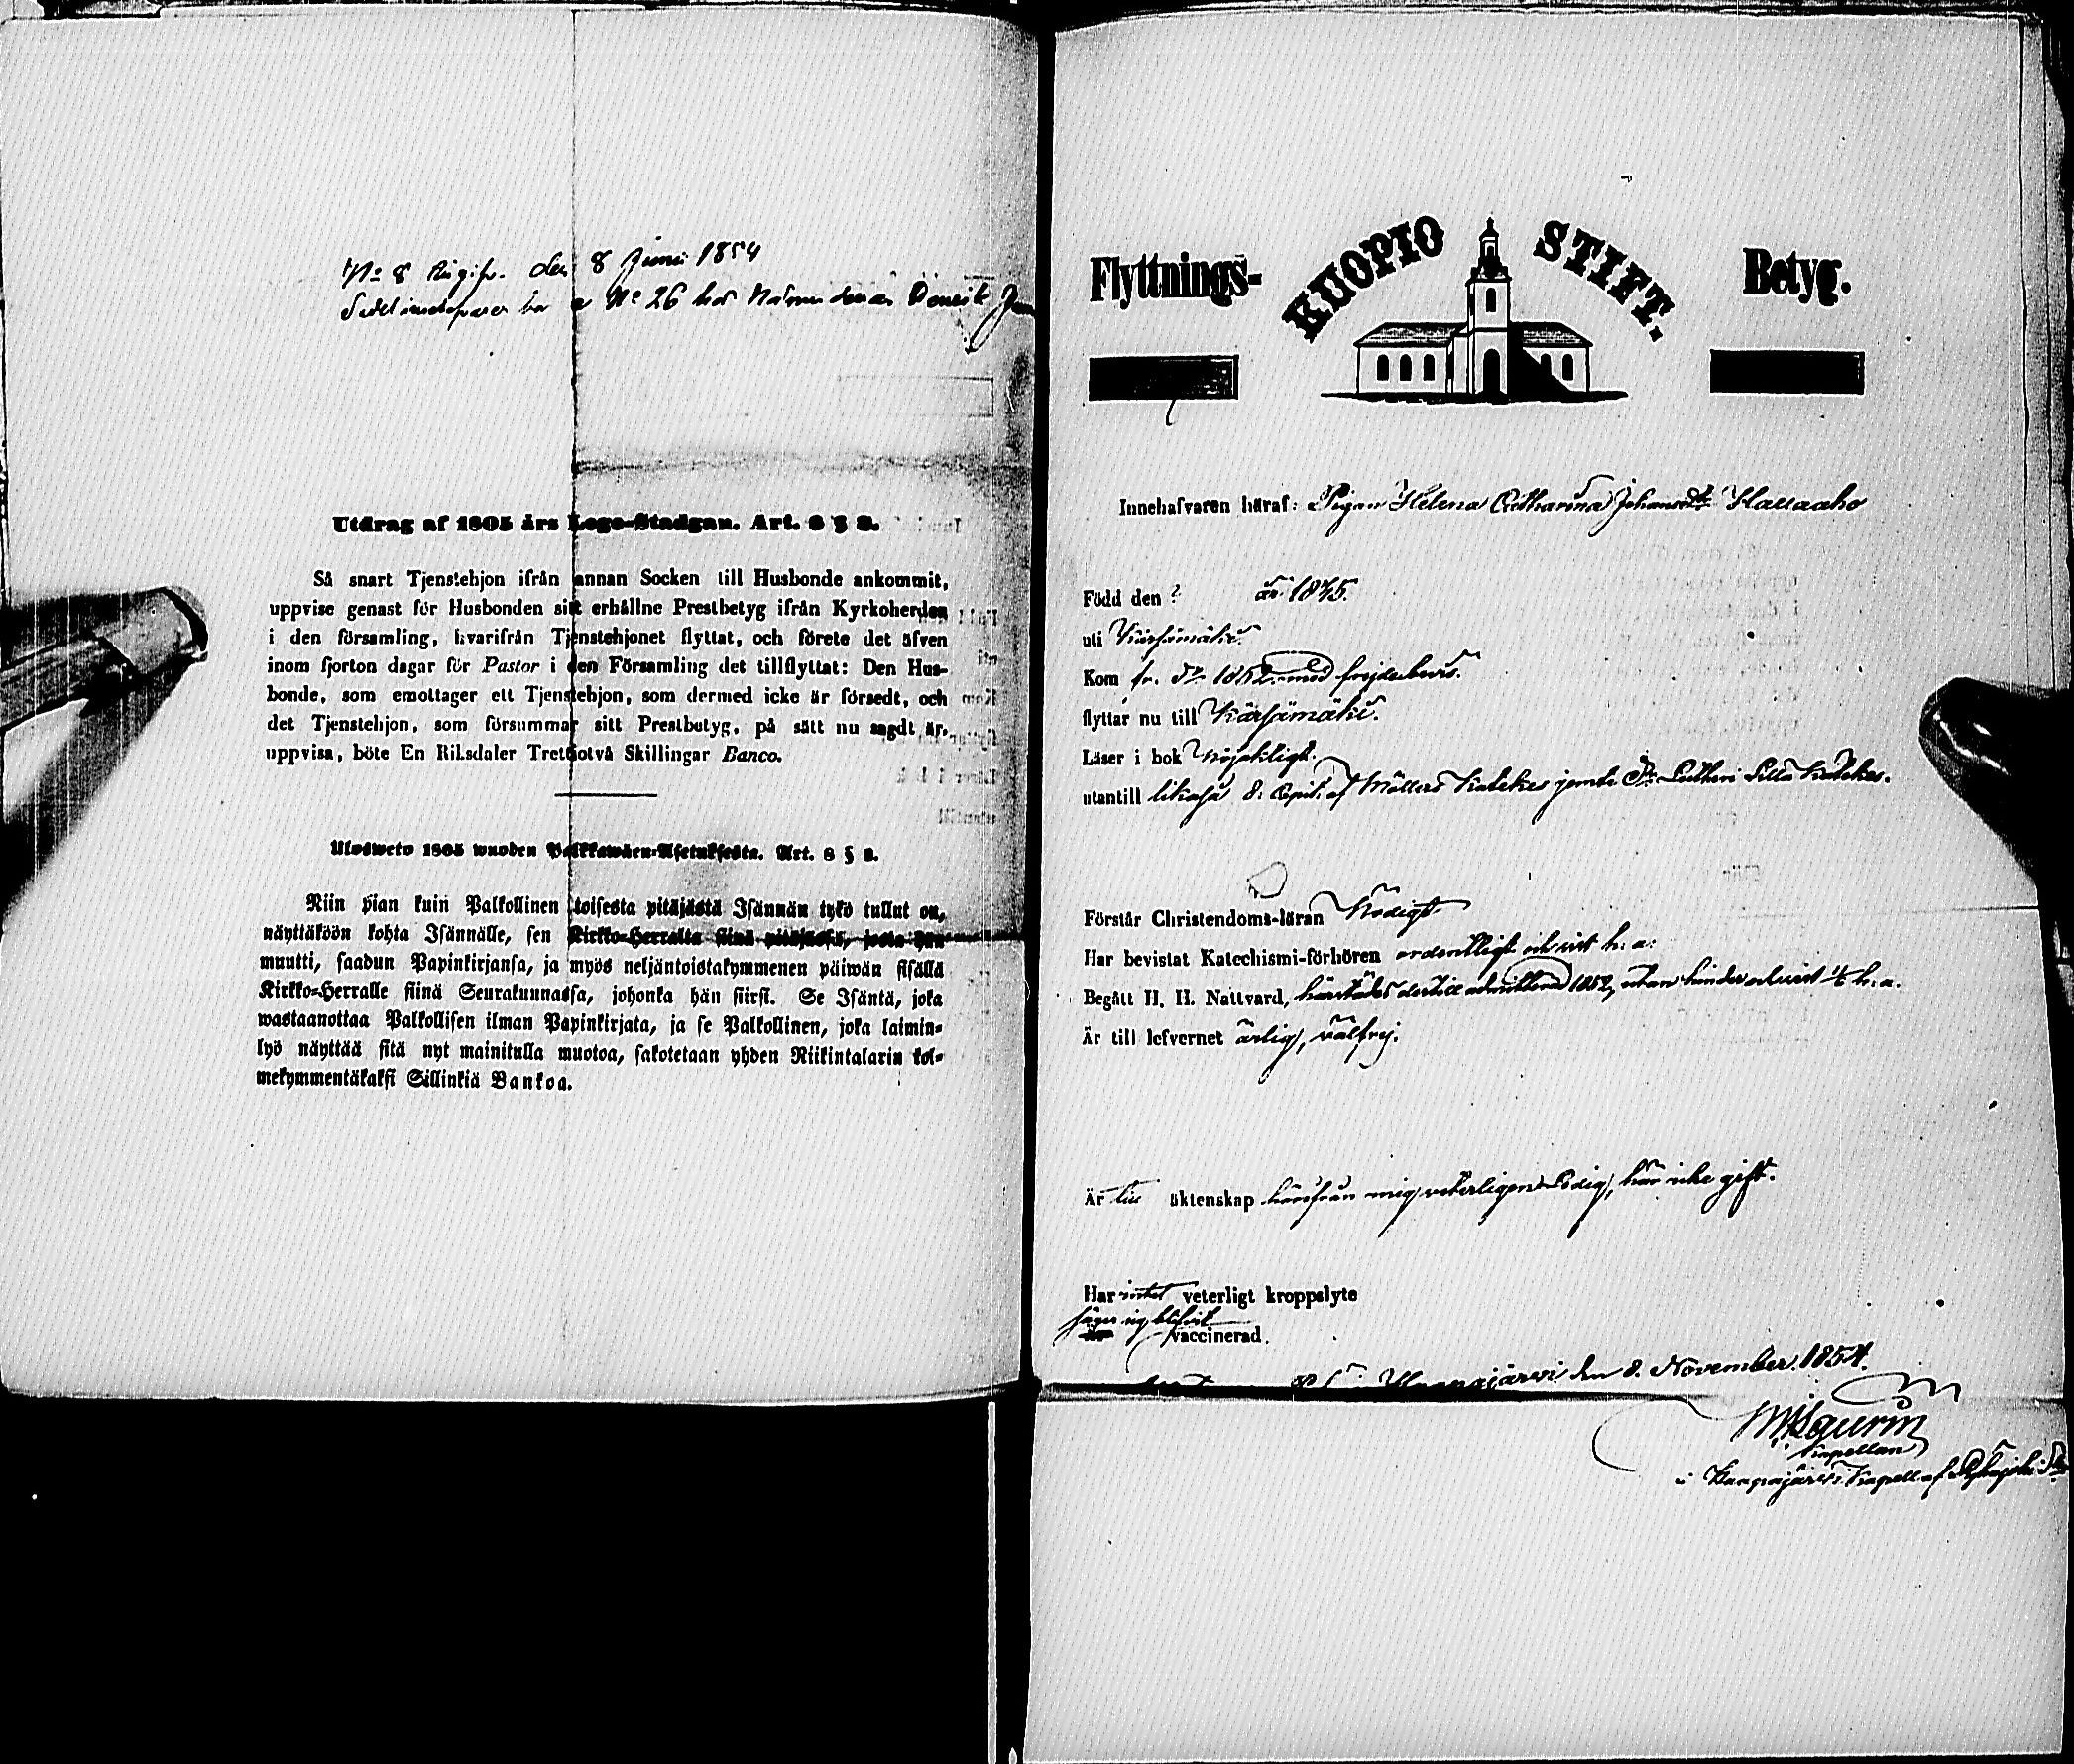 No 8 den 8 Junii 1854
No 26 hos
Utdrag af 1805 års Lego-Stadgan. Art. 8 § 8.
Så snart Tjenstehjon ifrån annan Socken till Husbonde ankommit,
uppvise genast för Husbonden sitt erhållne Prestbetyg ifrån Kyrkoherden
i den församling, hvarifrån Tjenstehjonet flyttat, och förete det äfven
inom fjorton dagar för Pastor i den Församling det tillflyttat: Den Hus-
bonde, som emottager ett Tjenstehjon, som dermed icke är försedt, och
det Tjenstehjon, som försummar sitt Prestbetyg, på sätt nu sagdt är,
uppvisa, böte En Riksdaler Trettiotvå Skillingar Banco.
Ulosweto 1805 wuoden Palkkawäen-Asetuksesta. Art. 8 § 8.
Niin pian kuin Palkollinen toisesta pitäjästä Isännän tykö tullut on,
näyttäköön kohta Isännälle, sen Kirkko-Herralta siinä pitäjässä, josta hän
muutti, saadun Papinkirjansa, ja myös neljäntoistakymmenen päiwän sisällä
Kirkko-Herralle siinä Seurakunnassa, johonka hän siirsi. Se Isäntä, joka
wastaanottaa Palkollisen ilman Papinkirjata, ja se Palkollinen, joka laimin-
lyö näyttää sitä nyt mainitulla muotoa, sakotetaan yhden Riikintalarin kol-
mekymmentäkaksi Sillinkiä Bankoa.
Flyttnings- KUOPIO STIFT. Betyg.
Innehafvaren häraf: Pigan Helena Catharina Johansdr
Född den ? år 1835.
uti Kärsämäki.
Kom fr. do 1852 med frejdebevis.
flyttar nu till Kärsämäki.
Läser i bok nöjaktligt.
utantill likaså 8. Capit. af Möllers Katekes jemte Dr Lutheri Lilla Katekes.
Förstår Christendoms-läran Nödigt
Har bevistat Katechismi-förhören ordentligt och sist h. a.
Begått H. H. Nattvard, härstädes dertill admitterad 1852, utan hinder och sist h. a.
Är till lefvernet ärlig, välfrej.
Är till äktenskap härifrån mig veterligen Ledig, här icke gift.
Har intet veterligt kroppslyte
säger sig blifvit
vaccinerad.
Haapajärvi den 8. November. 1854.
Kapellan
i Haapajärvi Kapell af Pyhäjoki